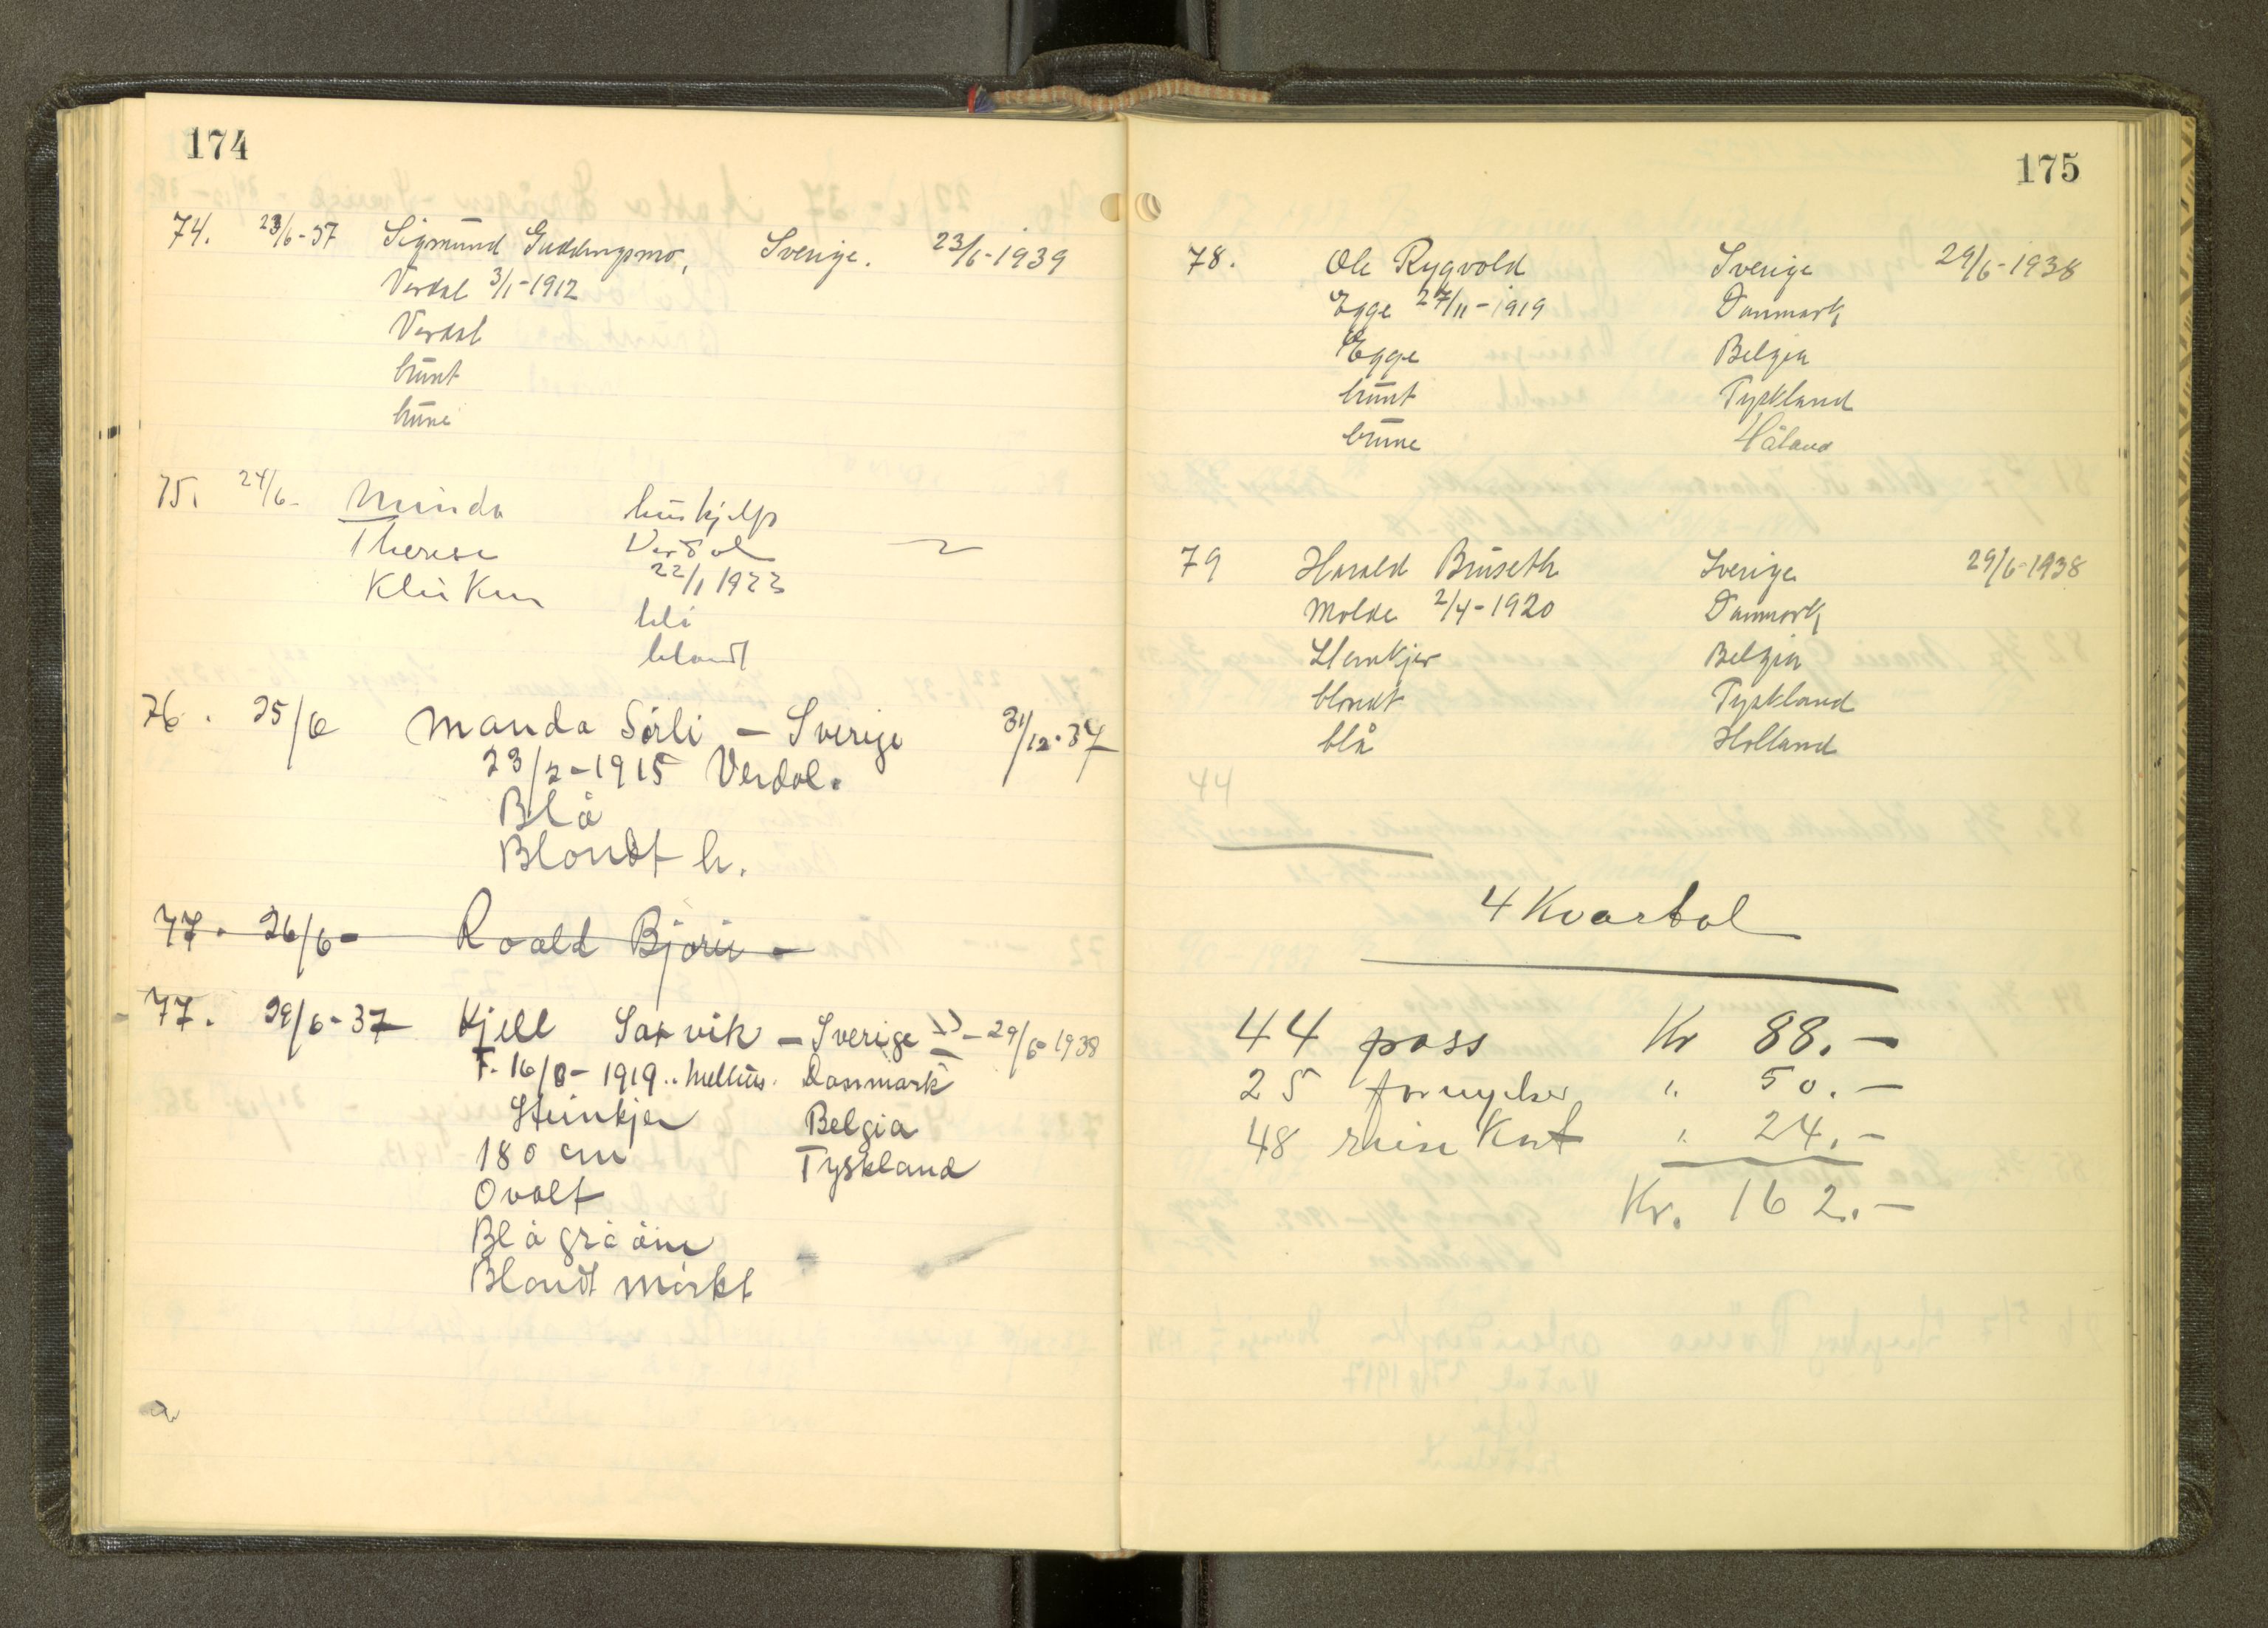 174
74. 23/6-37 Sigmund Guddingsmo, Sverige. 23/6-1939
Verdal 3/1-1912
Verdal
brunt
brune
75. 24/6- Minda huskjelp
Therese Verdal
22/1 1923
blå
blondt
76. 25/6 Manda Sørli - Sverige 31/12-37
23/2-1915 Verdal.
Blå
Blondt h.
77. 26/6- Roald
77. 29/6-37 Kjell Saxvik - Sverige - 29/6 1938
F. 16/8-1919. Melhus. Danmark
Steinkjer Belgia
180 cm Tyskland
Ovalt
Blågrå öine
Blondt mørkt
175
78. Ole Rygvold Sverige 29/6-1938
Egge 27/11-1919 Danmark
Egge Belgia
brunt Tyskland
brune Håland
79 Harald Bruseth Sverige 29/6-1938
Molde 2/4-1920 Danmark
Steinkjer Belgia
blondt Tyskland
blå Holland
44
4 Kvartal
44 pass Kr 88.-
25 fornyelser " 50.-
48 reisekort " 24.-
Kr. 162.-